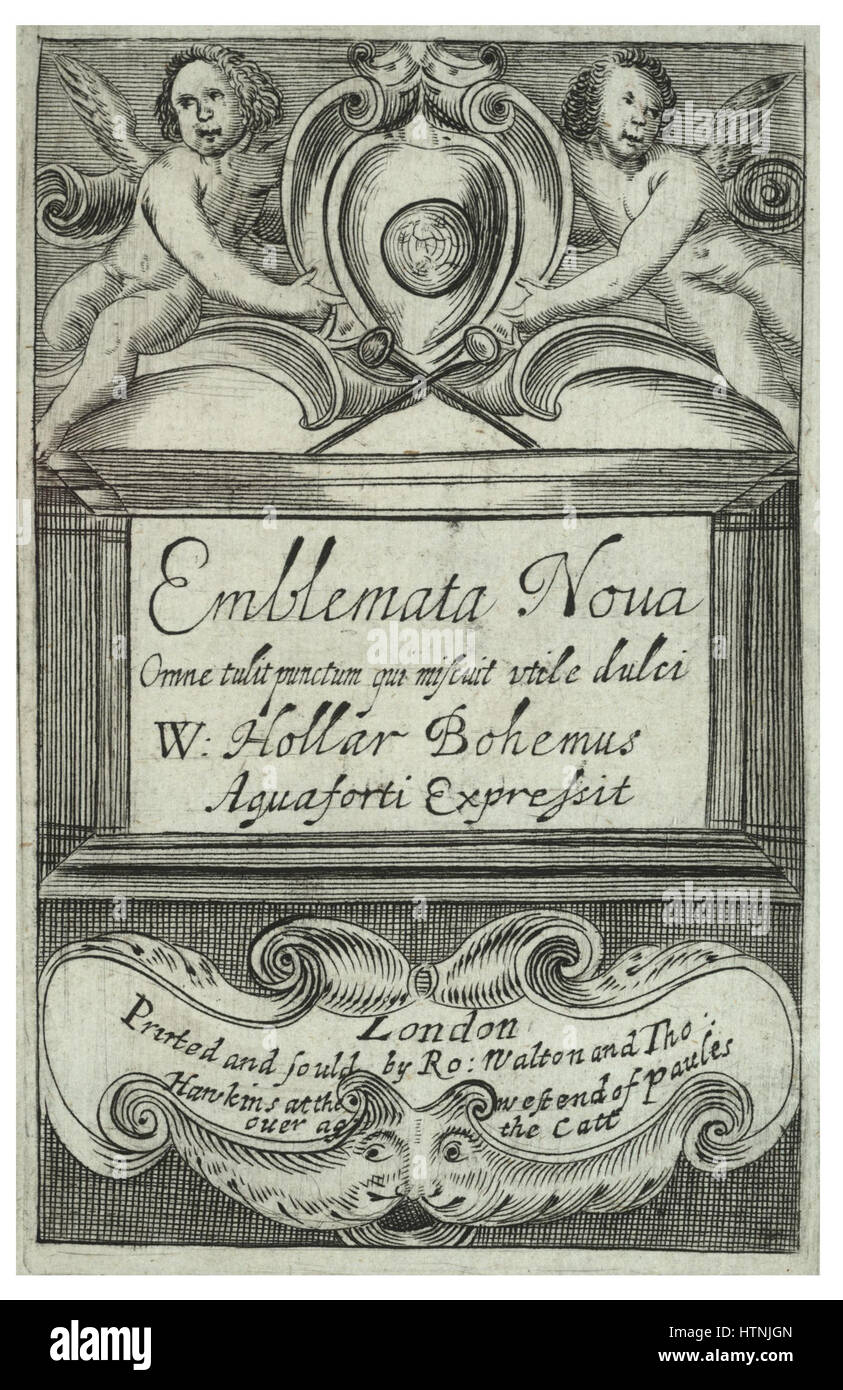 Emblemata Noua
Omne tulit punctum qui miscuit vtile dulci
W: Hollar Bohemus
Aquaforti Expressit
London
Printed and sould by Ro: Walton and Tho:
Hawkins at the west end of Paules
ouer ag the Catt
alamy
Image ID: HTNJGN
www.alamy.com